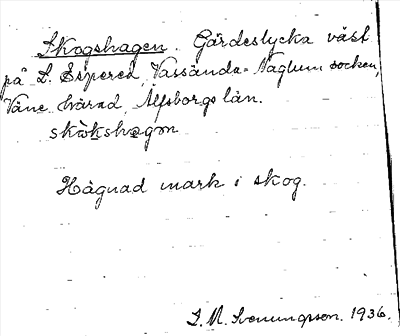 Skogshagen. Gärdeslycka väst
på L. Espered, Vassända-Naglum socken,
Väne härad, Älfsborgs län.
skòkshagən
Hägnad mark i skog.
S. M. Svenungsson. 1936.